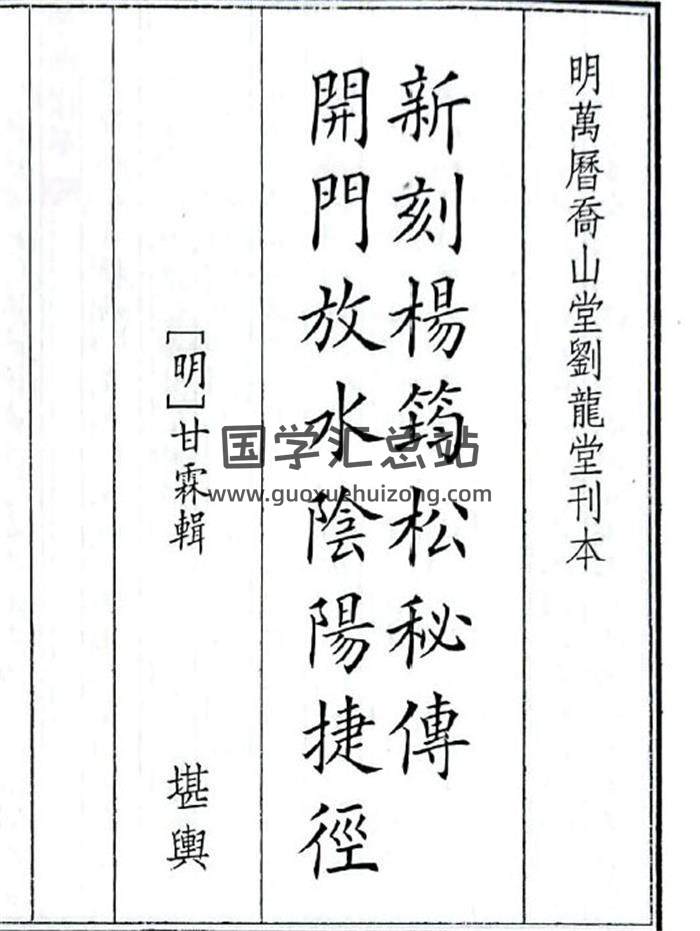 明萬曆喬山堂劉龍堂刊本
新刻楊筠松秘傳
開門放水陰陽捷徑
[明]甘霖輯
堪輿
国学汇总站
www.guoxuehuizong.com